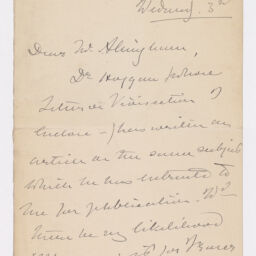 Wednesy. 3rd
Dear Mr. Allingham,
Dr Hoggan whose
letter on Vivisection I
enclose - has written an
article on the same subject
which he has entrusted to
me for publication. Wd
there be any likelihood
for Fraser